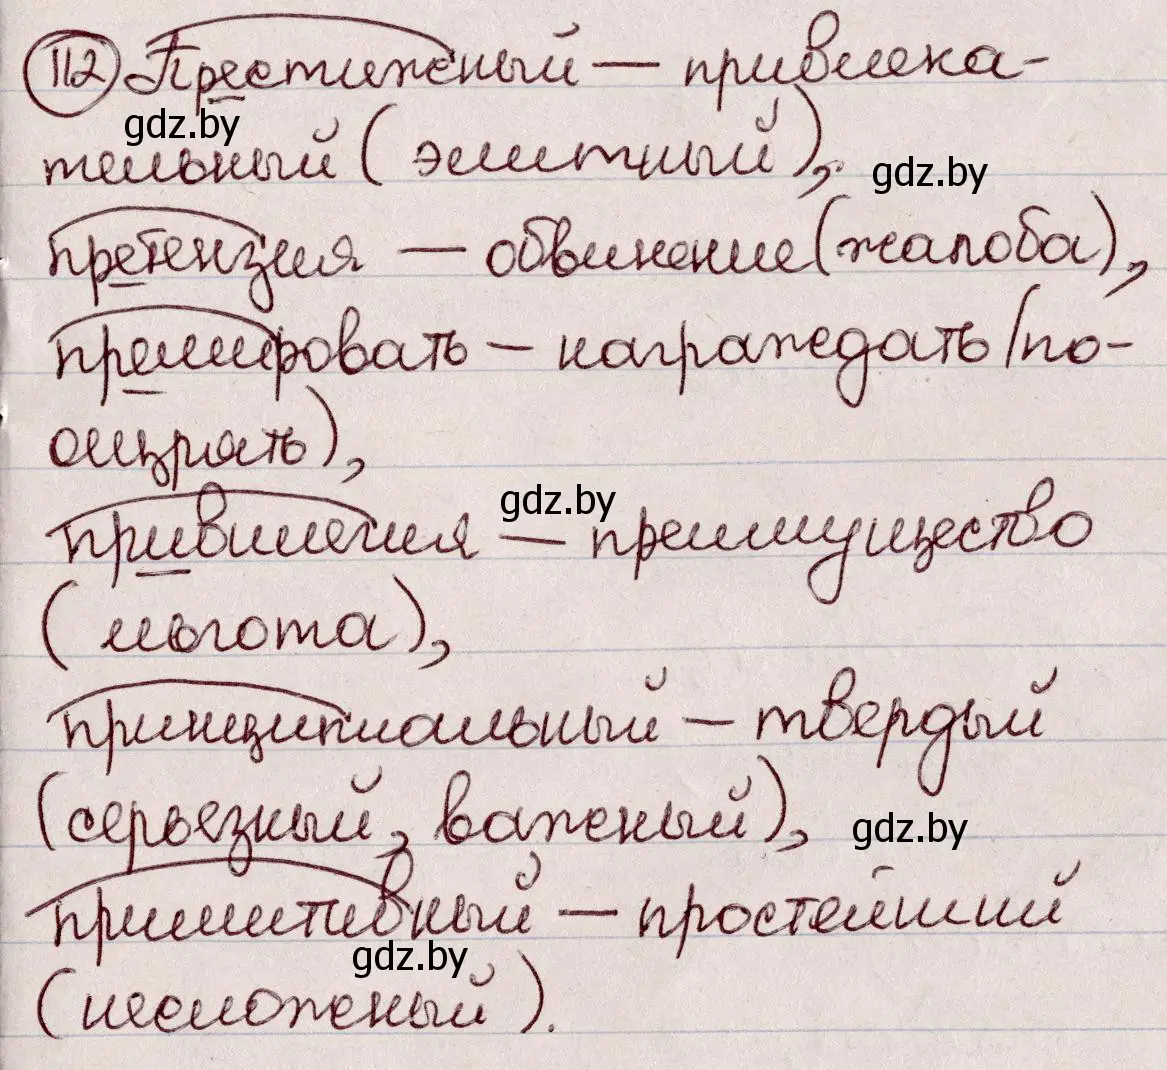 112 Престижный — привлека-
gdz.by
тельный (элитный),
gdz.by
претензия — обвинение (жалоба),
премировать — награждать (по-
ощрять),
gdz.by
привилегия — преимущество
(льгота),
принципиальный — твердый
(серьезный, важный),
gdz.by
примитивный — простейший
gdz.by
(несложный).